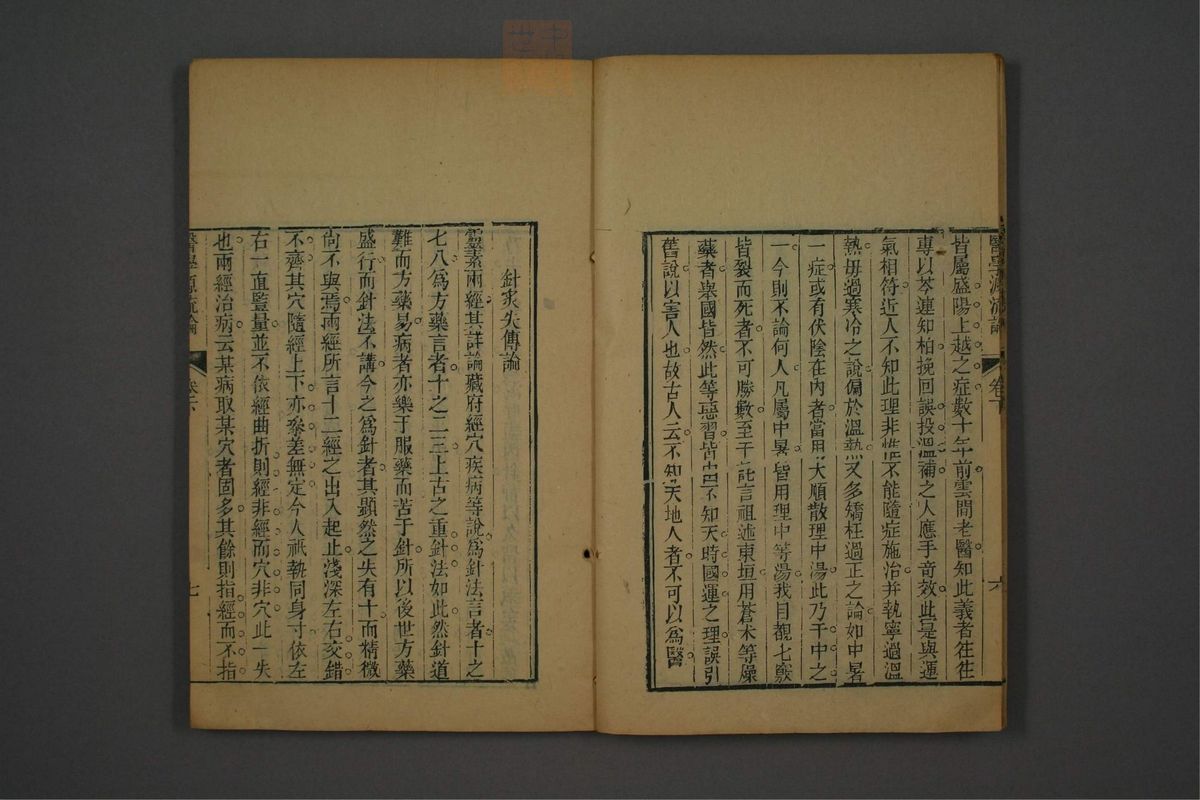 醫學源流論 卷下 六
皆屬盛陽上越之症數十年前雲間老醫知此義者往往
專以芩連知柏挽回誤投溫補之人應手竒效此是與運
氣相符近人不知此理非惟不能隨症施治并執寧過溫
熱毋過寒冷之說偏於溫熱又多矯枉過正之論如中暑
一症或有伏陰在內者當用大順散理中湯此乃千中之
一今則不論何人凡屬中暑皆用理中等湯我目覩七竅
皆裂而死者不可勝數至于託言祖述東垣用蒼术等燥
藥者舉國皆然此等惡習皆由不知天時國運之理誤引
舊說以害人也故古人云不知天地人者不可以爲醫
針灸失傳論
靈素兩經其詳論藏府經穴疾病等說爲針法言者十之
七八爲方藥言者十之二三上古之重針法如此然針道
難而方藥易病者亦樂于服藥而苦于針所以後世方藥
盛行而針法不講今之爲針者其顯然之失有十而精微
尚不與焉兩經所言十二經之出入起止淺深左右交錯
不齊其穴隨經上下亦參差無定今人祇執同身寸依左
右一直竪量並不依經曲折則經非經而穴非穴此一失
也兩經治病云某病取某穴者固多其餘則指經而不指
醫學源流論 七